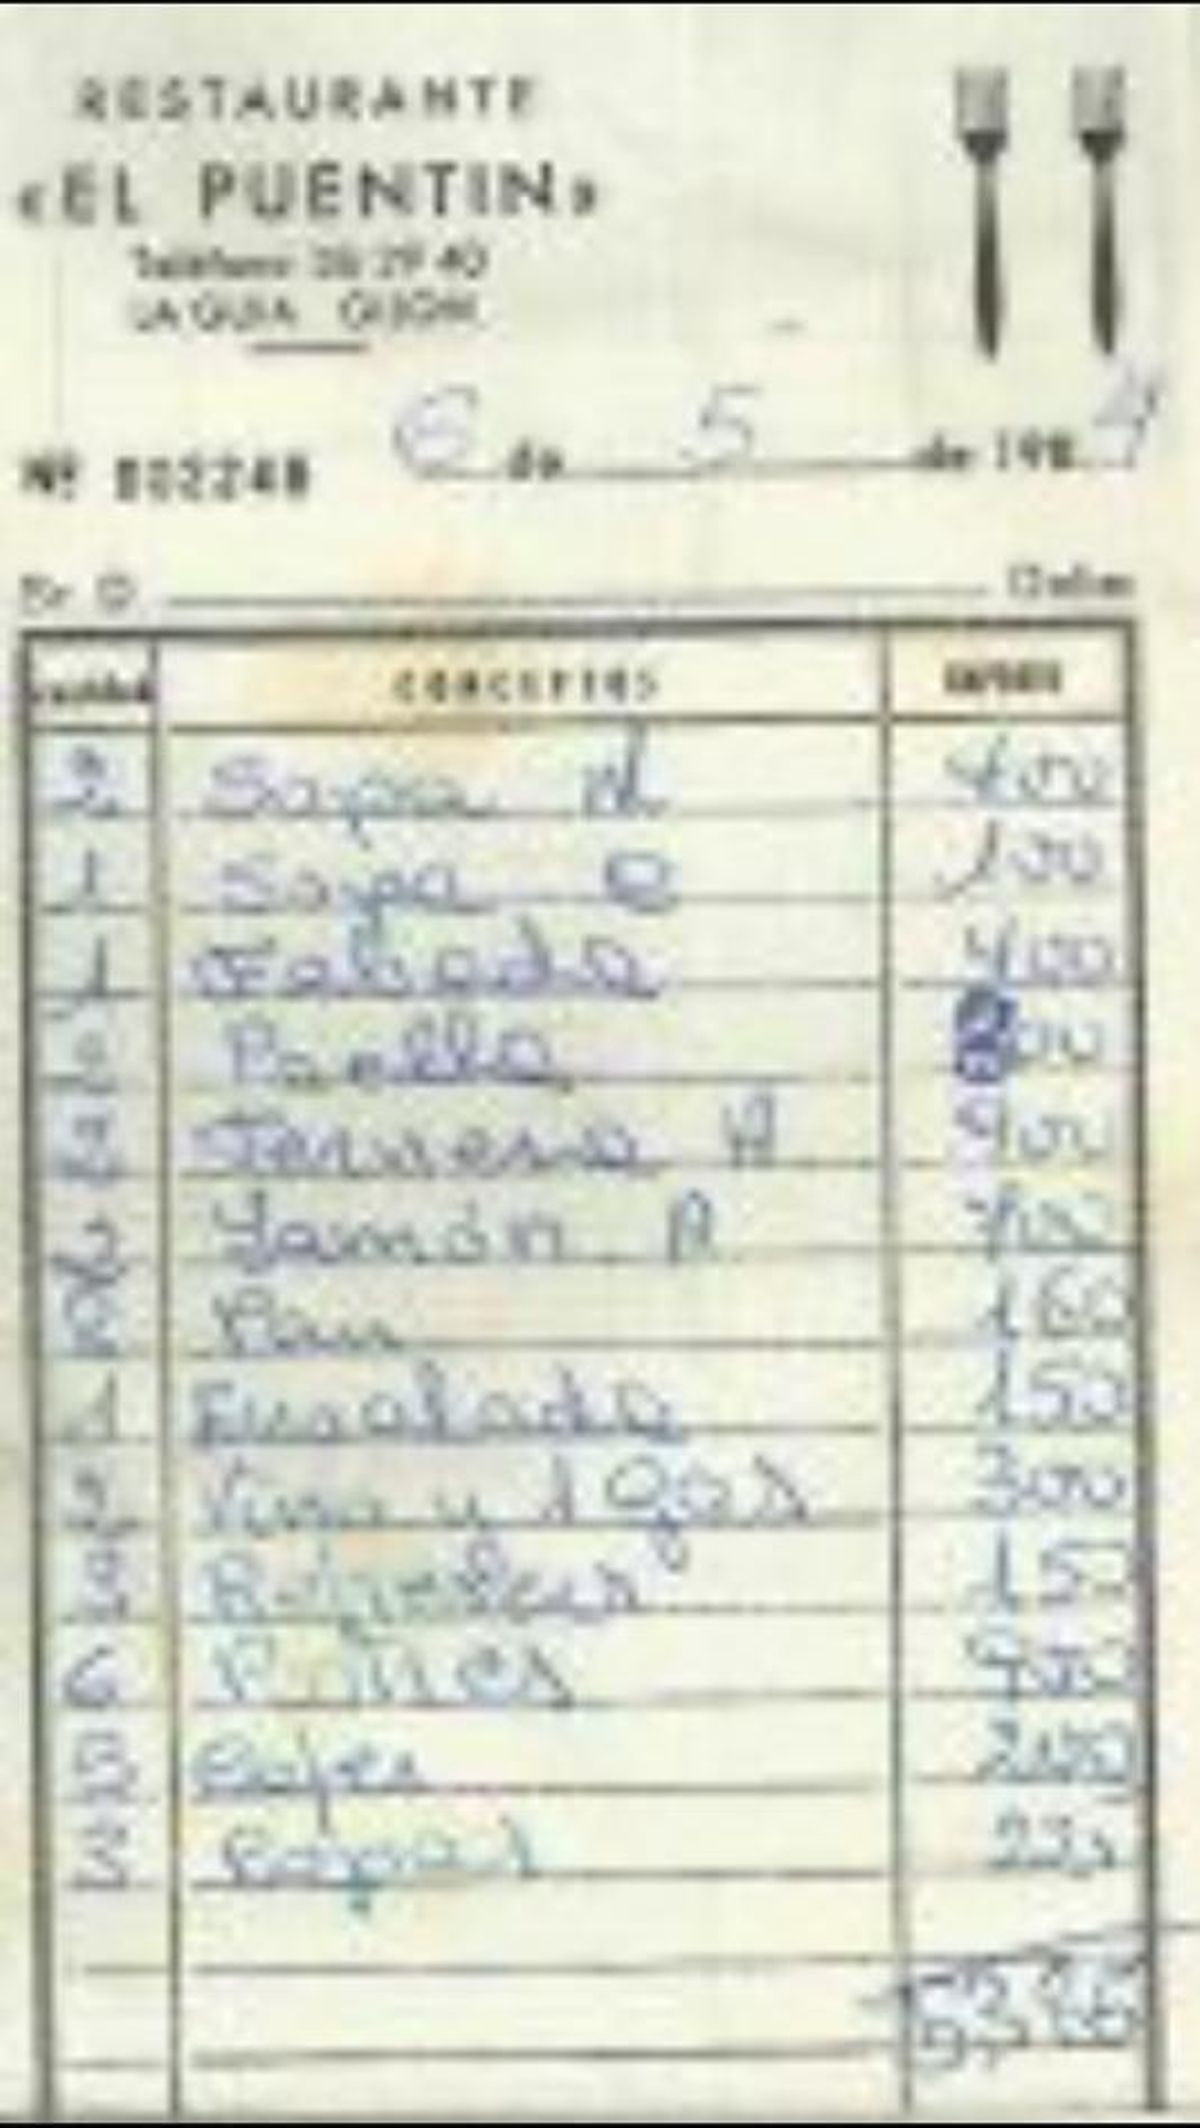 RESTAURANTE
«EL PUENTIN»
Teléfono 29 40
LA GUIA GIJON
Nº 802248
6 de 5 de 198
Sr. D.
CONCEPTOS IMPORTE
2 Sopa 400
1 Sopa 100
1 Fabada 400
2 Paella 00
2 Ternera A 900
2 Jamón A 700
Pan 160
1 Ensalada 150
2 Vino y 1 gas 300
3 150
6 900
5 Cafes 200
3 Copas 225